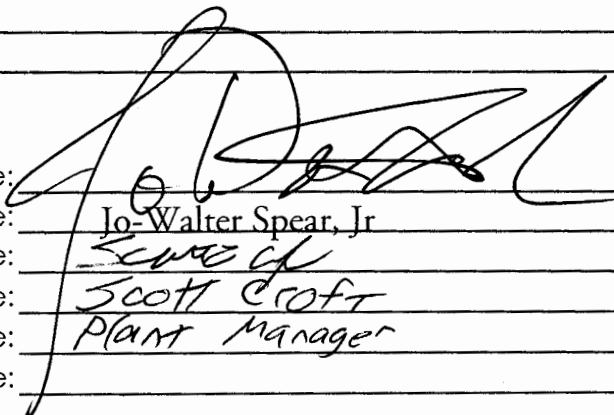 e:
e: Jo-Walter Spear, Jr
e:
e: Scott Croft
e: Plant Manager
e: